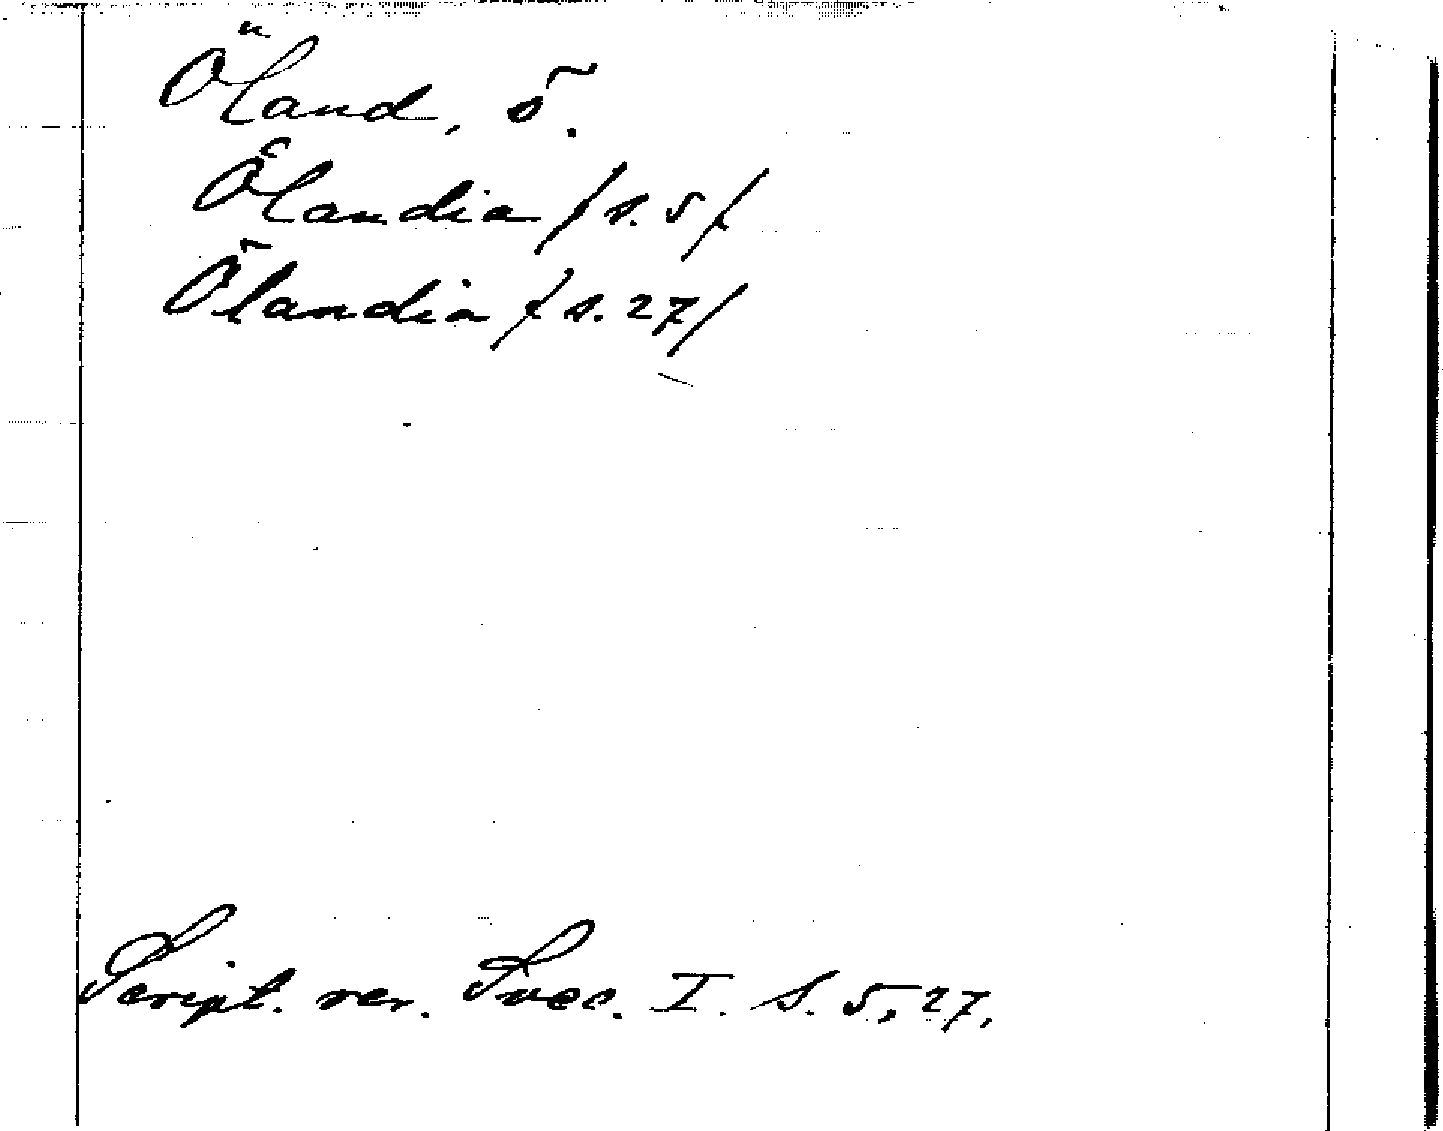 Öland, ö.
Oͤlandia / s. 5 /
Ölandia / s. 27 /
Script. rer. Svec. I. S. 5, 27.